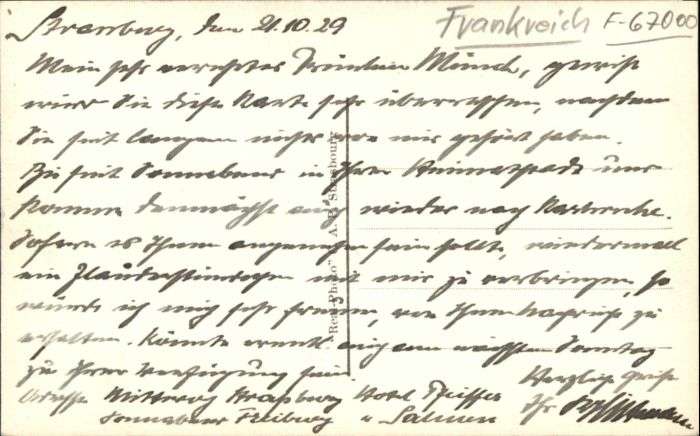 Strassburg, den 21.10.29
Frankreich F-67000
Mein sehr verehrtes Fräulein Münch, gewiss
wird Sie diese Karte sehr überraschen, nachdem
Sie seit langem nichts von mir gehört haben.
Bin seit Sonnabend in Ihrer Heimatstadt und
komme demnächst auch wieder nach Karlsruhe.
Sofern es Ihnen angenehm sein sollte, wiedermal
ein Plauderstündchen mit mir zu verbringen, so
würde ich mich sehr freuen, von Ihnen Nachricht zu
erhalten. Könnte event. auch am nächsten Sonntag
zu Ihrer Verfügung sein.
Herzlich grüsst
Adresse Mittwoch Strassburg Hotel Pfeiffer
Ihr
Sonnabend Freiburg " Salmen
"Real-Photo" A. P. Strasbourg